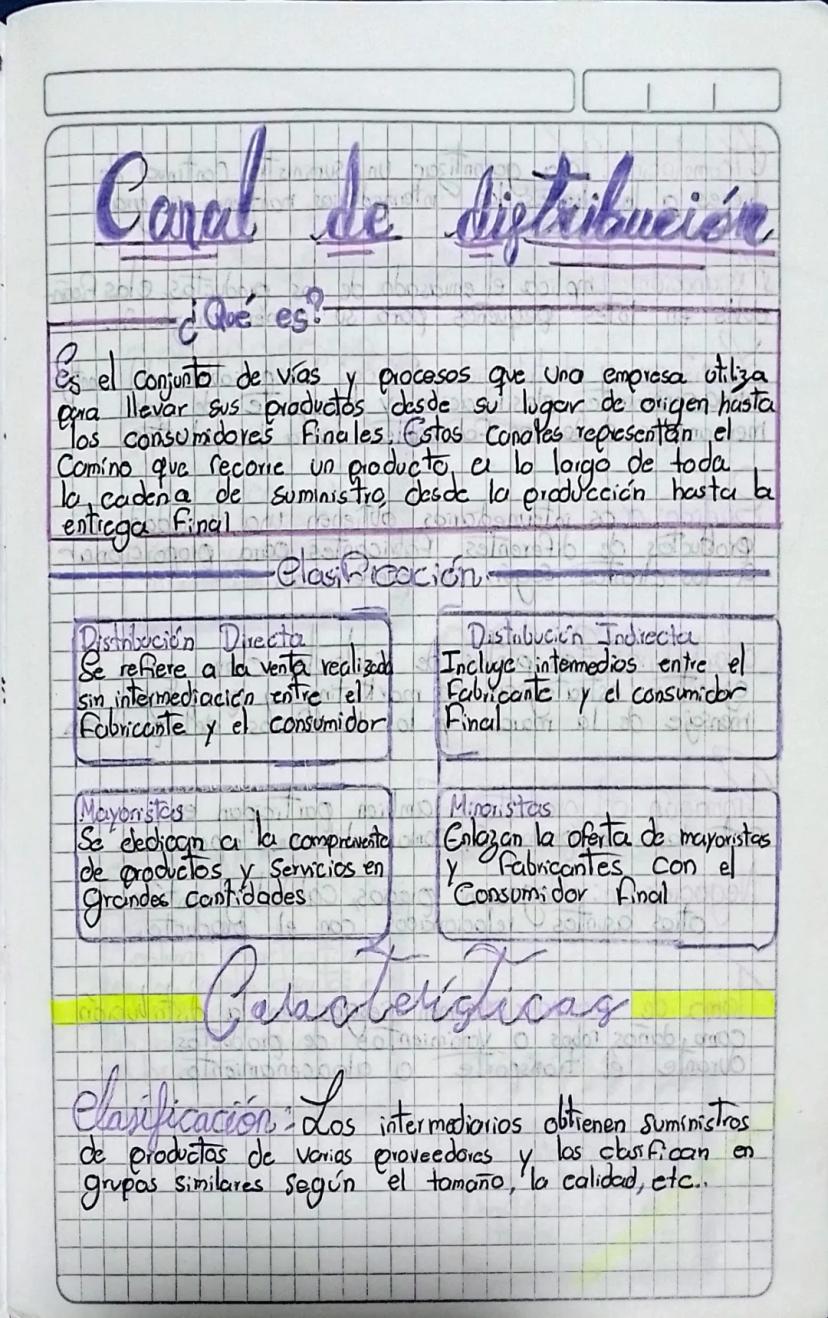 Canal de distribución
¿Qué es?
Es el conjunto de vías y procesos que una empresa utiliza
para llevar sus productos desde su lugar de origen hasta
los consumidores finales. Estos canales representan el
Camino que recorre un producto a lo largo de toda
la cadena de suministro, desde la producción hasta la
entrega final
Clasificación
Distribución Directa
Se refiere a la venta realizada
sin intermediación entre el
fabricante y el consumidor
Distribución Indirecta
Incluye intermedios entre el
Fabricante y el consumidor
Final
Mayoristas
Se dedican a la compraventa
de productos y Servicios en
grandes cantidades
Minoristas
Enlazan la oferta de mayoristas
y fabricantes con el
Consumidor final
Características
Clasificación: Los intermediarios obtienen suministros
de productos de varios proveedores y los clasifican en
grupos similares según el tamaño, la calidad, etc..